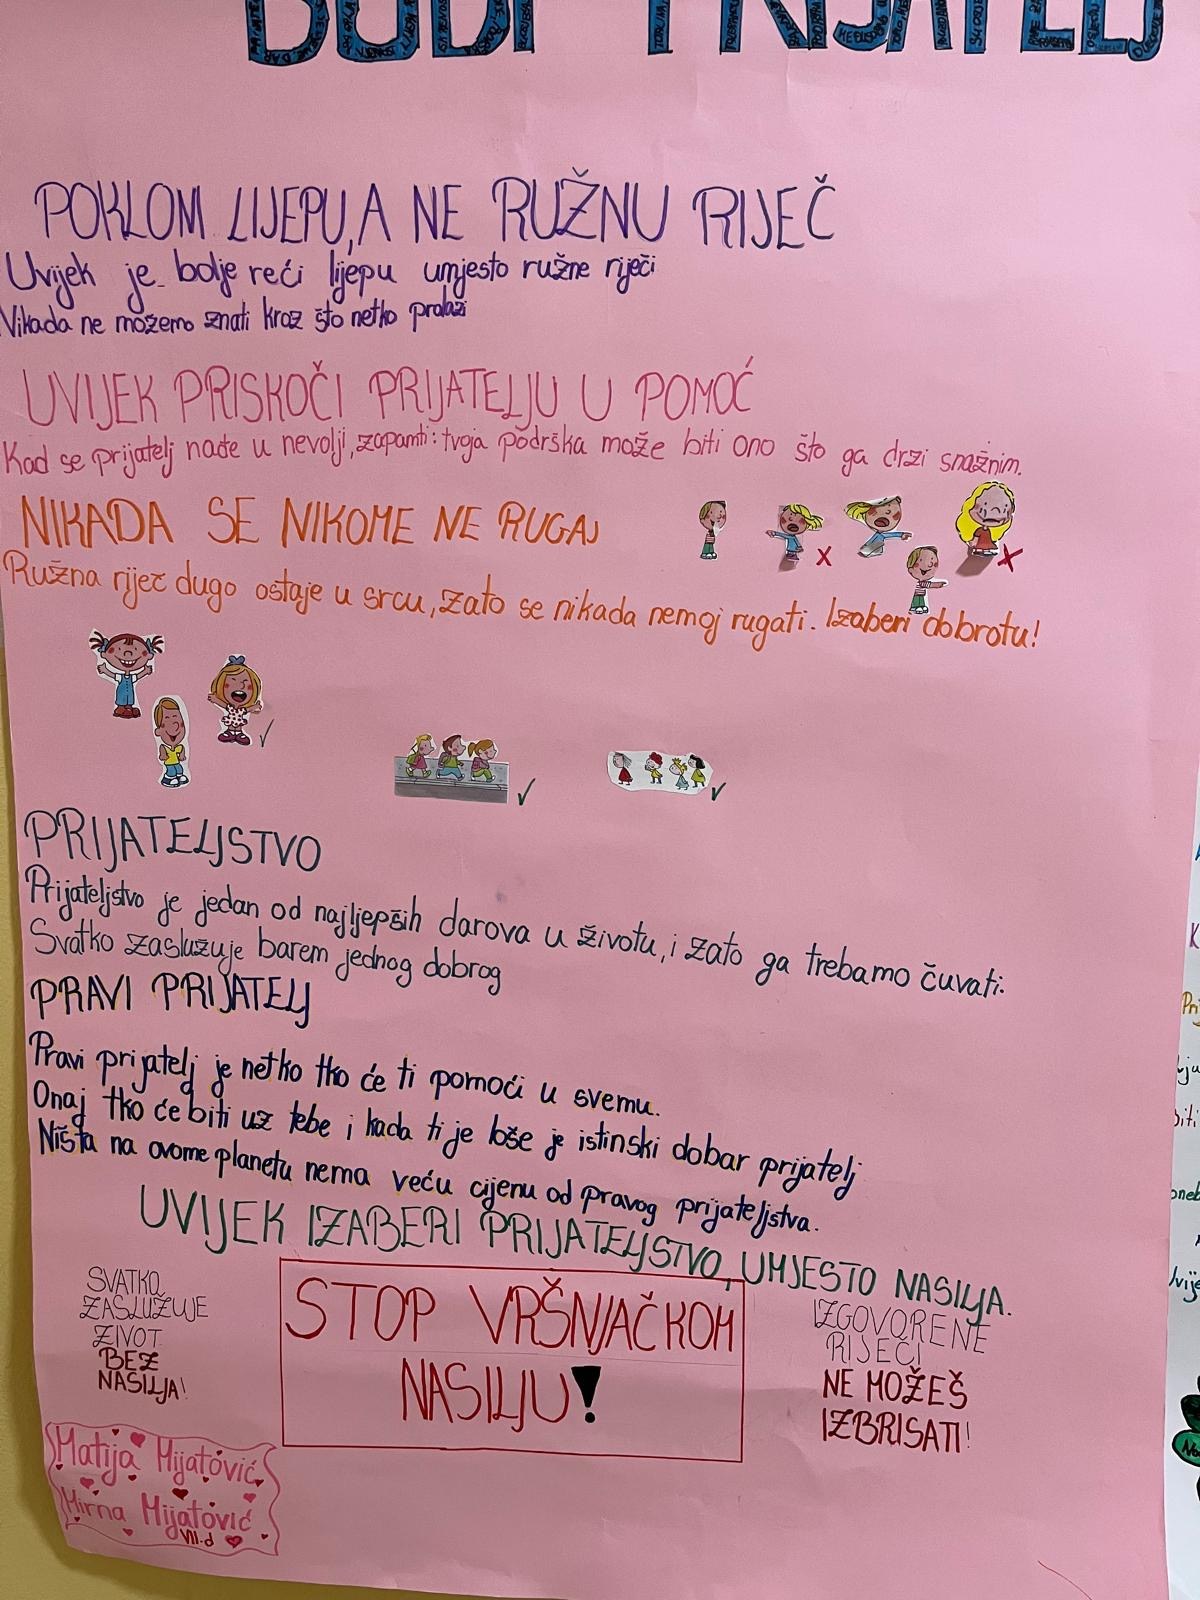 BUDI PRIJATELJ
POKLONI LIJEPU, A NE RUŽNU RIJEČ
Uvijek je bolje reći lijepu umjesto ružne riječi
Nikada ne možemo znati kroz što netko prolazi
UVIJEK PRISKOČI PRIJATELJU U POMOĆ
Kad se prijatelj nađe u nevolji, zapamti: tvoja podrška može biti ono što ga drzi snažnim.
NIKADA SE NIKOME NE RUGAJ
Ružna riječ dugo ostaje u srcu, zato se nikada nemoj rugati. Izaberi dobrotu!
PRIJATELJSTVO
Prijateljstvo je jedan od najljepših darova u životu, i zato ga trebamo čuvati.
Svatko zaslužuje barem jednog dobrog
PRAVI PRIJATELJ
Pravi prijatelj je netko tko će ti pomoći u svemu.
Onaj tko će biti uz tebe i kada ti je loše je istinski dobar prijatelj
Ništa na ovome planetu nema veću cijenu od pravog prijateljstva.
UVIJEK IZABERI PRIJATELJSTVO, UMJESTO NASILJA.
SVATKO
ZASLUŽUJE
ŽIVOT
BEZ
NASILJA!
STOP VRŠNJAČKOM
NASILJU!
IZGOVORENE
RIJEČI
NE MOŽEŠ
IZBRISATI!
Matija Mijatović
Mirna Mijatović
VII.d